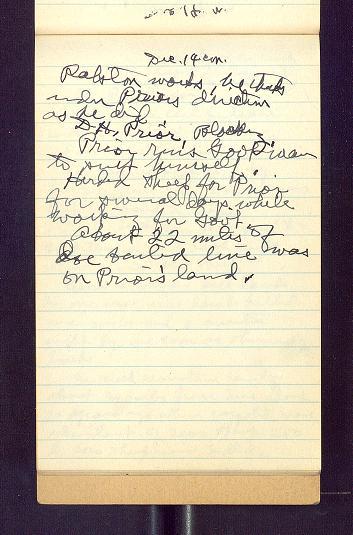 Dec. 14 con.
Ralston works, he thats
under Priors direction
as he did
D.H. Prior,
Prior runs Gov't man
to suit himself
Herded sheep for Prior
for several days while
working for Gov't
about 22 miles of
line was
on Prior's land.